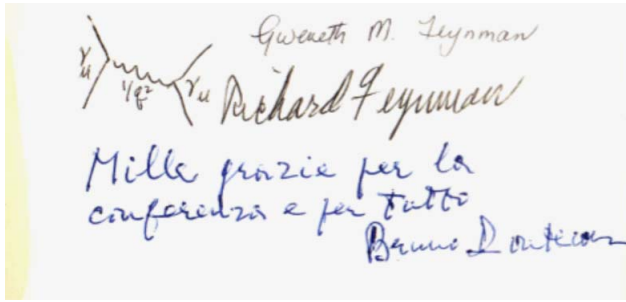 Gweneth M. Feynman
γμ 1/q² γμ Richard Feynman
Mille grazie per la
conferenza e per tutto
Bruno Pontecorvo